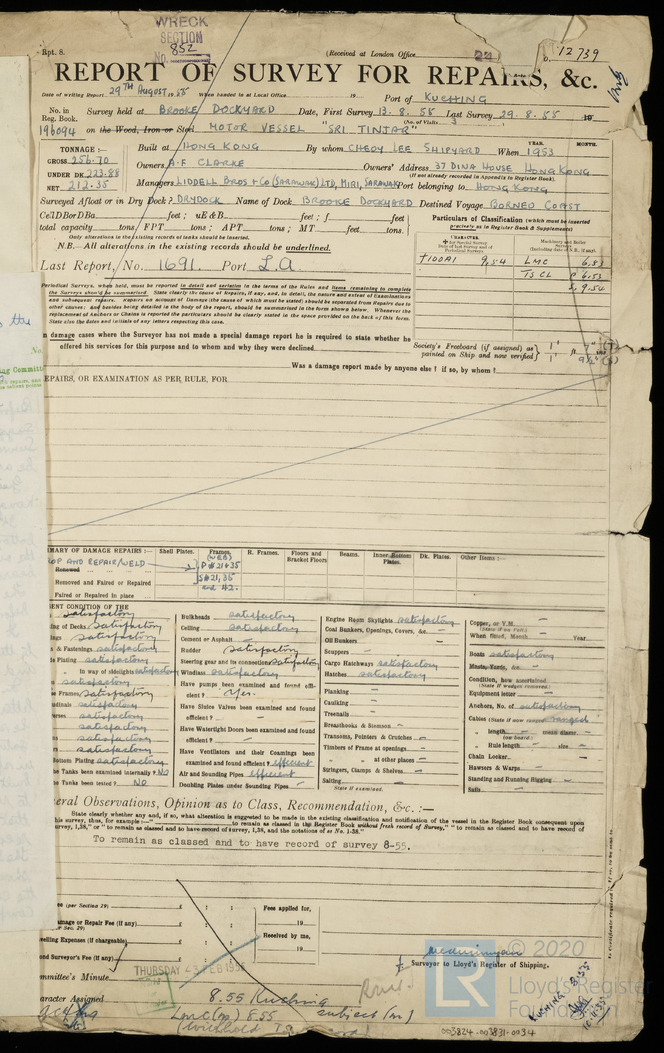 WRECK
SECTION
No. 852
Rpt. 8.
(Received at London Office
12739
REPORT OF SURVEY FOR REPAIRS, &c.
Date of writing Report 29TH AUGUST 1955 When handed in at Local Office 19 Port of KUCHING
No. in Reg. Book. Survey held at BROOKE DOCKYARD Date, First Survey 13.8.55 Last Survey 29.8.55 19
(No. of Visits 3
196094 on the Wood, Iron or Steel MOTOR VESSEL "SRI TINJAR"
TONNAGE:—
GROSS 256.70
UNDER DK 223.88
NET 212.35
Built at HONG KONG By whom CHEOY LEE SHIPYARD When 1953
YEAR. MONTH.
Owners A.F CLARKE Owners' Address 37 DINA HOUSE HONG KONG
(If not already recorded in Appendix to Register Book).
Managers LIDDELL BROS & Co (SARAWAK) LTD, MIRI, SARAWAK Port belonging to HONG KONG
Surveyed Afloat or in Dry Dock? DRYDOCK Name of Dock BROOKE DOCKYARD Destined Voyage BORNEO COAST
Cell DBor DBa feet; uE&B feet; f feet
total capacity tons; FPT tons; APT tons; MT feet tons.
Only alterations in the existing records of tanks should be inserted.
N.B.—All alterations in the existing records should be underlined.
Last Report, No. 1691 Port L.A.
Particulars of Classification (which must be inserted
precisely as in Register Book & Supplements)
CHARACTER.
+100A1 9,54 LMC 6,53
TS CL 6.53
S. 9.54
Periodical Surveys, when held, must be reported in detail and seriatim in the terms of the Rules and Items remaining to complete
the Surveys should be summarised. State clearly the cause of Repairs, if any, and, in detail, the nature and extent of Examinations
and subsequent repairs. Repairs on account of Damage (the cause of which must be stated) should be separated from Repairs due to
other causes; and besides being detailed in the body of the report, should be summarised in the form shown below. Whenever the
replacement of Anchors or Chains is reported the particulars should be clearly stated in the space provided on the back of this form.
State also the dates and initials of any letters respecting this case.
n damage cases where the Surveyor has not made a special damage report he is required to state whether he
offered his services for this purpose and to whom and why they were declined
Society's Freeboard (if assigned) as
painted on Ship and now verified
Was a damage report made by anyone else? if so, by whom?
EPAIRS, OR EXAMINATION AS PER RULE, FOR
MARY OF DAMAGE REPAIRS:— Shell Plates. Frames. (WEB) R. Frames. Floors and Bracket Floors Beams. Inner Bottom Plates. Dk. Plates. Other Items:—
OP AND REPAIR/WELD P#21&35
Renewed
Removed and Faired or Repaired S#21,35
Faired or Repaired in place and 42.
ENT CONDITION OF THE
satisfactory
ng of Decks satisfactory
ngs satisfactory
& Fastenings satisfactory
de Plating satisfactory
In way of sidelights satisfactory
satisfactory
e Frames satisfactory
satisfactory
erses satisfactory
satisfactory
satisfactory
satisfactory
ottom Plating satisfactory
e Tanks been examined internally? NO
e Tanks been tested? NO
Bulkheads satisfactory
Ceiling satisfactory
Cement or Asphalt –
Rudder satisfactory
Steering gear and its connections satisfactory
Windlass satisfactory
Have pumps been examined and found effi-
cient? Yes.
Have Sluice Valves been examined and found
efficient? –
Have Watertight Doors been examined and found
efficient? –
Have Ventilators and their Coamings been
examined and found efficient? efficient
Air and Sounding Pipes efficient
Doubling Plates under Sounding Pipes –
Engine Room Skylights satisfactory
Coal Bunkers, Openings, Covers, &c. –
Oil Bunkers –
Scuppers –
Cargo Hatchways satisfactory
Hatches satisfactory
Planking –
Caulking –
Treenails –
Breasthooks & Stemson –
Transoms, Pointers & Crutches –
Timbers of Frame at openings –
at other places –
Stringers, Clamps & Shelves –
Salting –
(State if examined.
Copper, or Y.M. –
(State if on Felt.)
When fitted, Month – Year
Boats satisfactory
Masts, Yards, &c. –
Condition, how ascertained
(State if wedges removed)
Equipment letter
Anchors, No. of satisfactory
Cables (State if now ranged) ranged
length – mean diamr. –
(on board)
Rule length – size –
Chain Locker –
Hawsers & Warps –
Standing and Running Rigging –
Sails –
eral Observations, Opinion as to Class, Recommendation, &c.:—
State clearly whether any, and if so, what alteration is suggested to be made in the existing classification and notification of the vessel in the Register Book consequent upon
his survey, thus, for example:—" to remain as classed in the Register Book without fresh record of Survey," "to remain as classed and to have record of
urvey, 1,38, or "to remain as classed and to have record of survey, 1,38, and the notations of ss No. 1-38."
To remain as classed and to have record of survey 8-55.
ee (per Section 29) £ : :
amage or Repair Fee (if any) £ : :
velling Expenses (if chargeable) £ : :
ond Surveyor's Fee (if any) £ : :
Fees applied for,
19
Received by me,
19
Surveyor to Lloyd's Register of Shipping.
ommittee's Minute
THURSDAY 23 FEB 1956
aracter Assigned
8.55 Kuching
Lmc(m) 8.55 subject (m)
KUCHING 8.55
© 2020
LR
Lloyd's Register
Foundation
003824-003831-0034